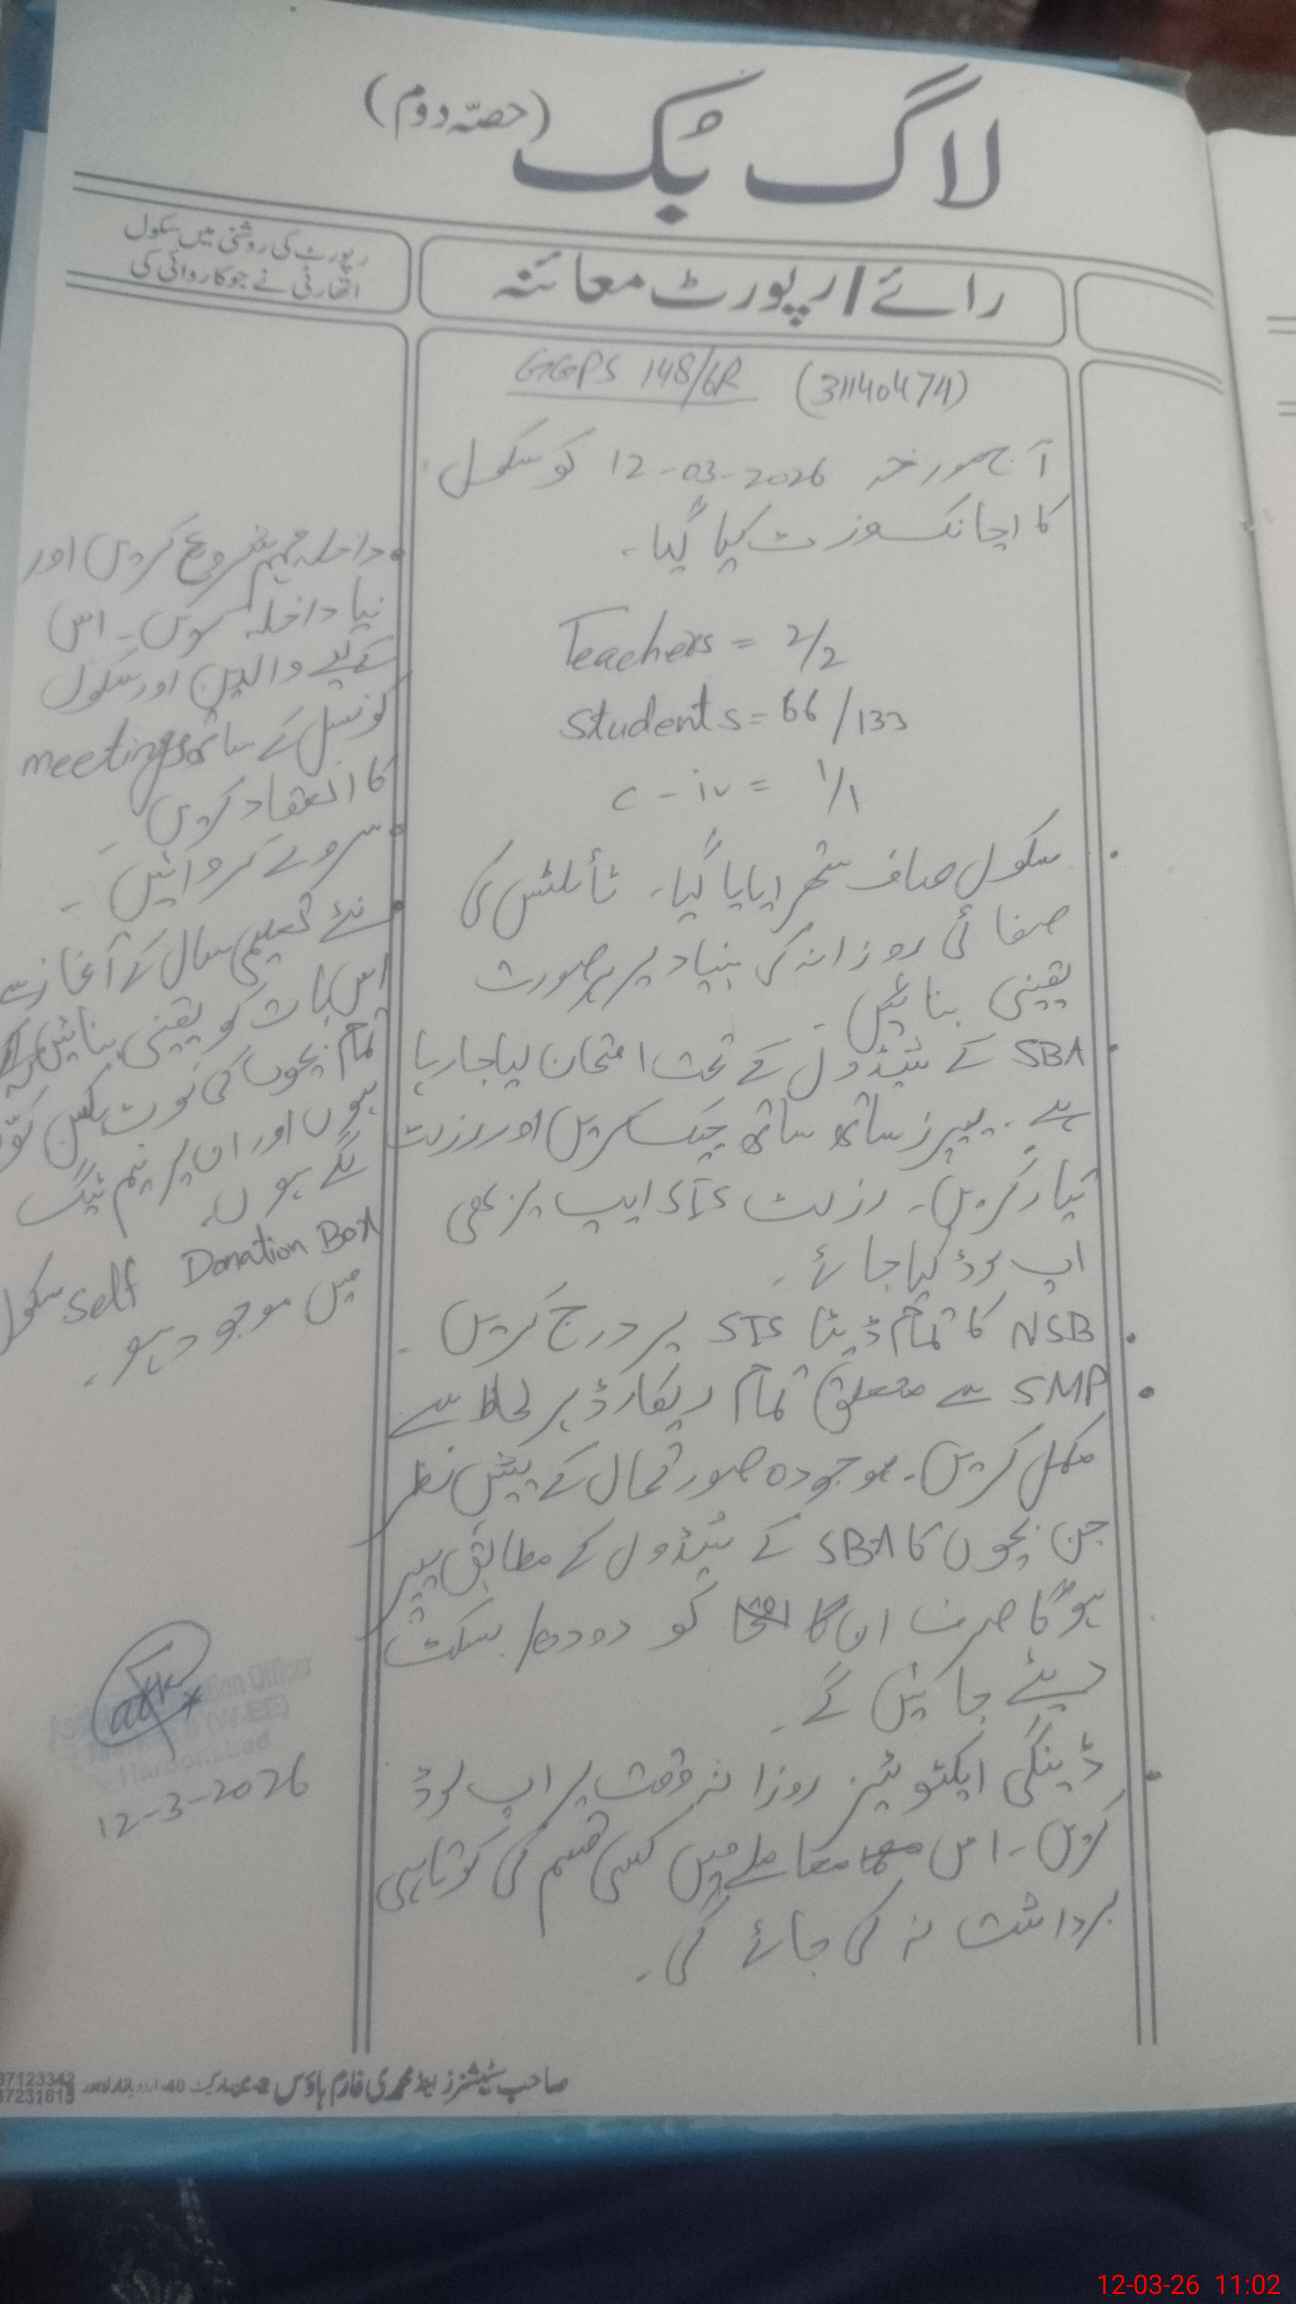 لاگ بُک (حصّہ دوم)
رائے / رپورٹ معائنہ
رپورٹ کی روشنی میں سکول
اتھارٹی نے جو کاروائی کی
GGPS 148/6R (31140474)
آج مورخہ 12-03-2026 کو سکول
کا اچانک وزٹ کیا گیا۔
Teachers = 2/2
Students = 66/133
C-iv = 1/1
• سکول صاف ستھرا پایا گیا۔ ٹائلٹس کی
صفائی روزانہ کی بنیاد پر بہرصورت
یقینی بنائیں۔
• SBA کے شیڈول کے تحت امتحان لیا جا رہا
ہے۔ پیپرز ساتھ ساتھ چیک کریں اور رزلٹ
تیار کریں۔ رزلٹ STS ایپ پر بھی
اپ لوڈ کیا جائے۔
• NSB کا تمام ڈیٹا STS پر درج کریں۔
• SMP سے متعلق تمام ریکارڈ ہر لحاظ سے
مکمل کریں۔ موجودہ صورتحال کے پیش نظر
جن بچوں کا SBA کے شیڈول کے مطابق پیپر
ہوگا صرف ان کو دودھ/بسکٹ
دیئے جائیں گے۔
• ڈینگی ایکٹویٹیز روزانہ وقت پر اپ لوڈ
کریں۔ اس معاملے میں کسی قسم کی کوتاہی
برداشت نہ کی جائے گی۔
• داخلہ مہم شروع کردیں اور
نیا داخلہ کریں۔ اس
کے لیے والدین اور سکول
کونسل کے ساتھ meetings
کا انعقاد کریں
• سروے کروائیں۔
• نئے تعلیمی سال کے آغاز سے
اس بات کو یقینی بنائیں کہ
تمام بچوں کی نوٹ بکس
ہوں اور ان پر نیم ٹیگ
لگے ہوں۔
Self Donation Box سکول
میں موجود ہو۔
12-3-2026
صاحب سٹیشنرز اینڈ محمدی فارم ہاؤس
12-03-26 11:02